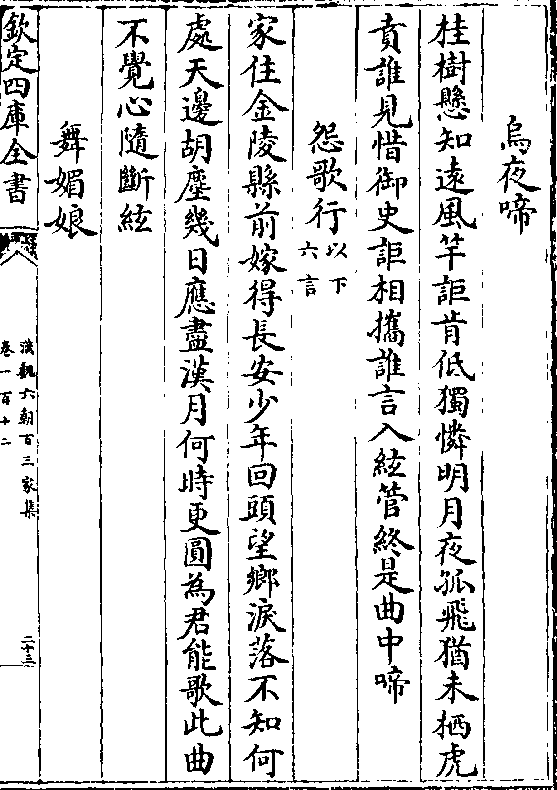 烏夜啼
桂樹懸知遠風竿詎肯低獨憐明月夜孤飛猶未栖虎
賁誰見惜御史詎相攜誰言入絃管終是曲中啼
怨歌行以下六言
家住金陵縣前嫁得長安少年回頭望鄉淚落不知何
處天邊胡塵幾日應盡漢月何時更圓為君能歌此曲
不覺心隨斷絃
舞媚娘
欽定四庫全書
漢魏六朝百三家集
卷一百十二
二十三